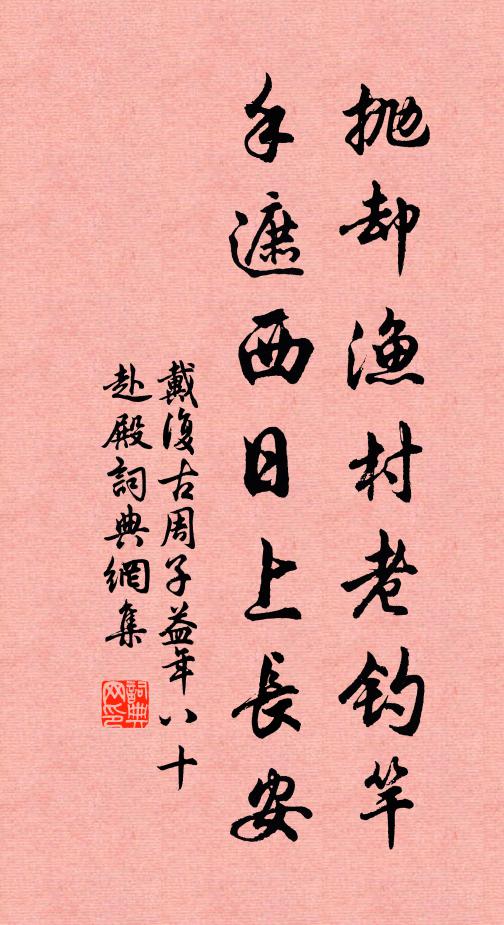 抛却漁村老釣竿
手遮西日上長安
戴復古周子益年八十
赴殿詞典網集
詞典
网印